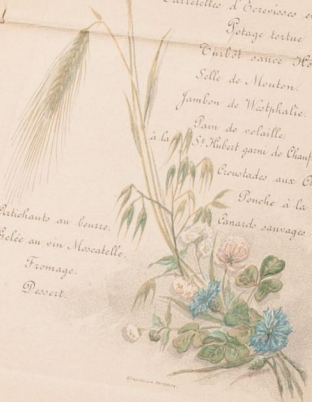 d'Ecrevisses
Potage tortue
Turbot sauce
Selle de Mouton.
Jambon de Westphalie.
Pain de volaille.
à la St Hubert garni de
Croustades aux
à la
Canards sauvages
Artichauts au beurre.
Gelée au vin Moscatelle.
Fromage.
Dessert.